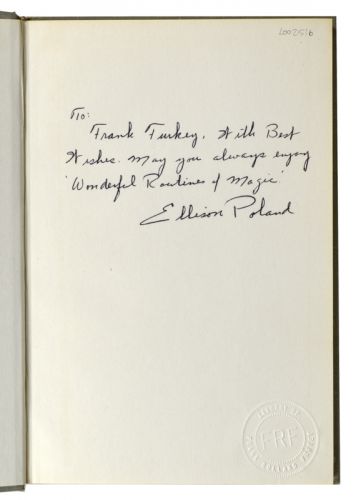 L002519
To:
Frank Furkey, With Best
Wishes. May you always enjoy
'Wonderful Routines of Magic'
Ellison Poland
LIBRARY OF
FRF